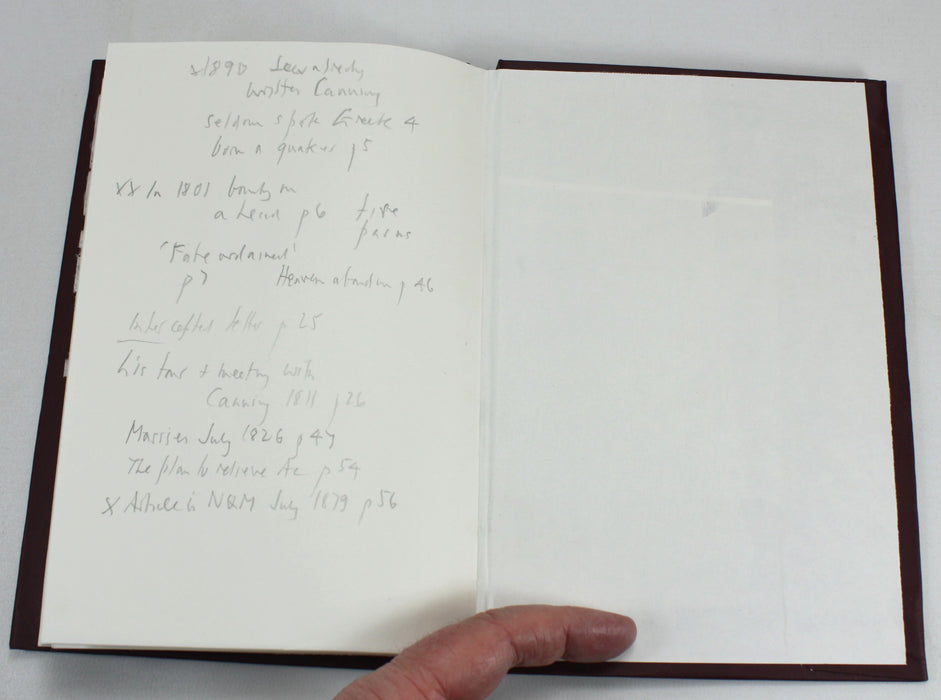 x 1890
Canning
seldom spoke Greek 4
born a quaker p5
XX In 1801 bounty on
a head p6 five
paras
'Fate ordained'
p7 Heaven abandon p 46
Intercepted letter p 25
his tour + meeting with
Canning 1811 p26
Marries July 1826 p 47
The plan to relieve Ac p 54
X Article in N&M July 1879 p56